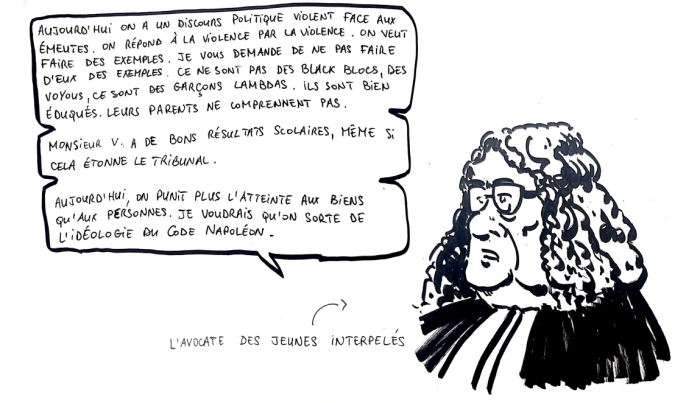 AUJOURD'HUI ON A UN DISCOURS POLITIQUE VIOLENT FACE AUX
ÉMEUTES. ON RÉPOND À LA VIOLENCE PAR LA VIOLENCE. ON VEUT
FAIRE DES EXEMPLES. JE VOUS DEMANDE DE NE PAS FAIRE
D'EUX DES EXEMPLES. CE NE SONT PAS DES BLACK BLOCS, DES
VOYOUS, CE SONT DES GARÇONS LAMBDAS. ILS SONT BIEN
ÉDUQUÉS. LEURS PARENTS NE COMPRENNENT PAS.
MONSIEUR V. A DE BONS RÉSULTATS SCOLAIRES, MÊME SI
CELA ÉTONNE LE TRIBUNAL.
AUJOURD'HUI, ON PUNIT PLUS L'ATTEINTE AUX BIENS
QU'AUX PERSONNES. JE VOUDRAIS QU'ON SORTE DE
L'IDÉOLOGIE DU CODE NAPOLÉON.
L'AVOCATE DES JEUNES INTERPELÉS